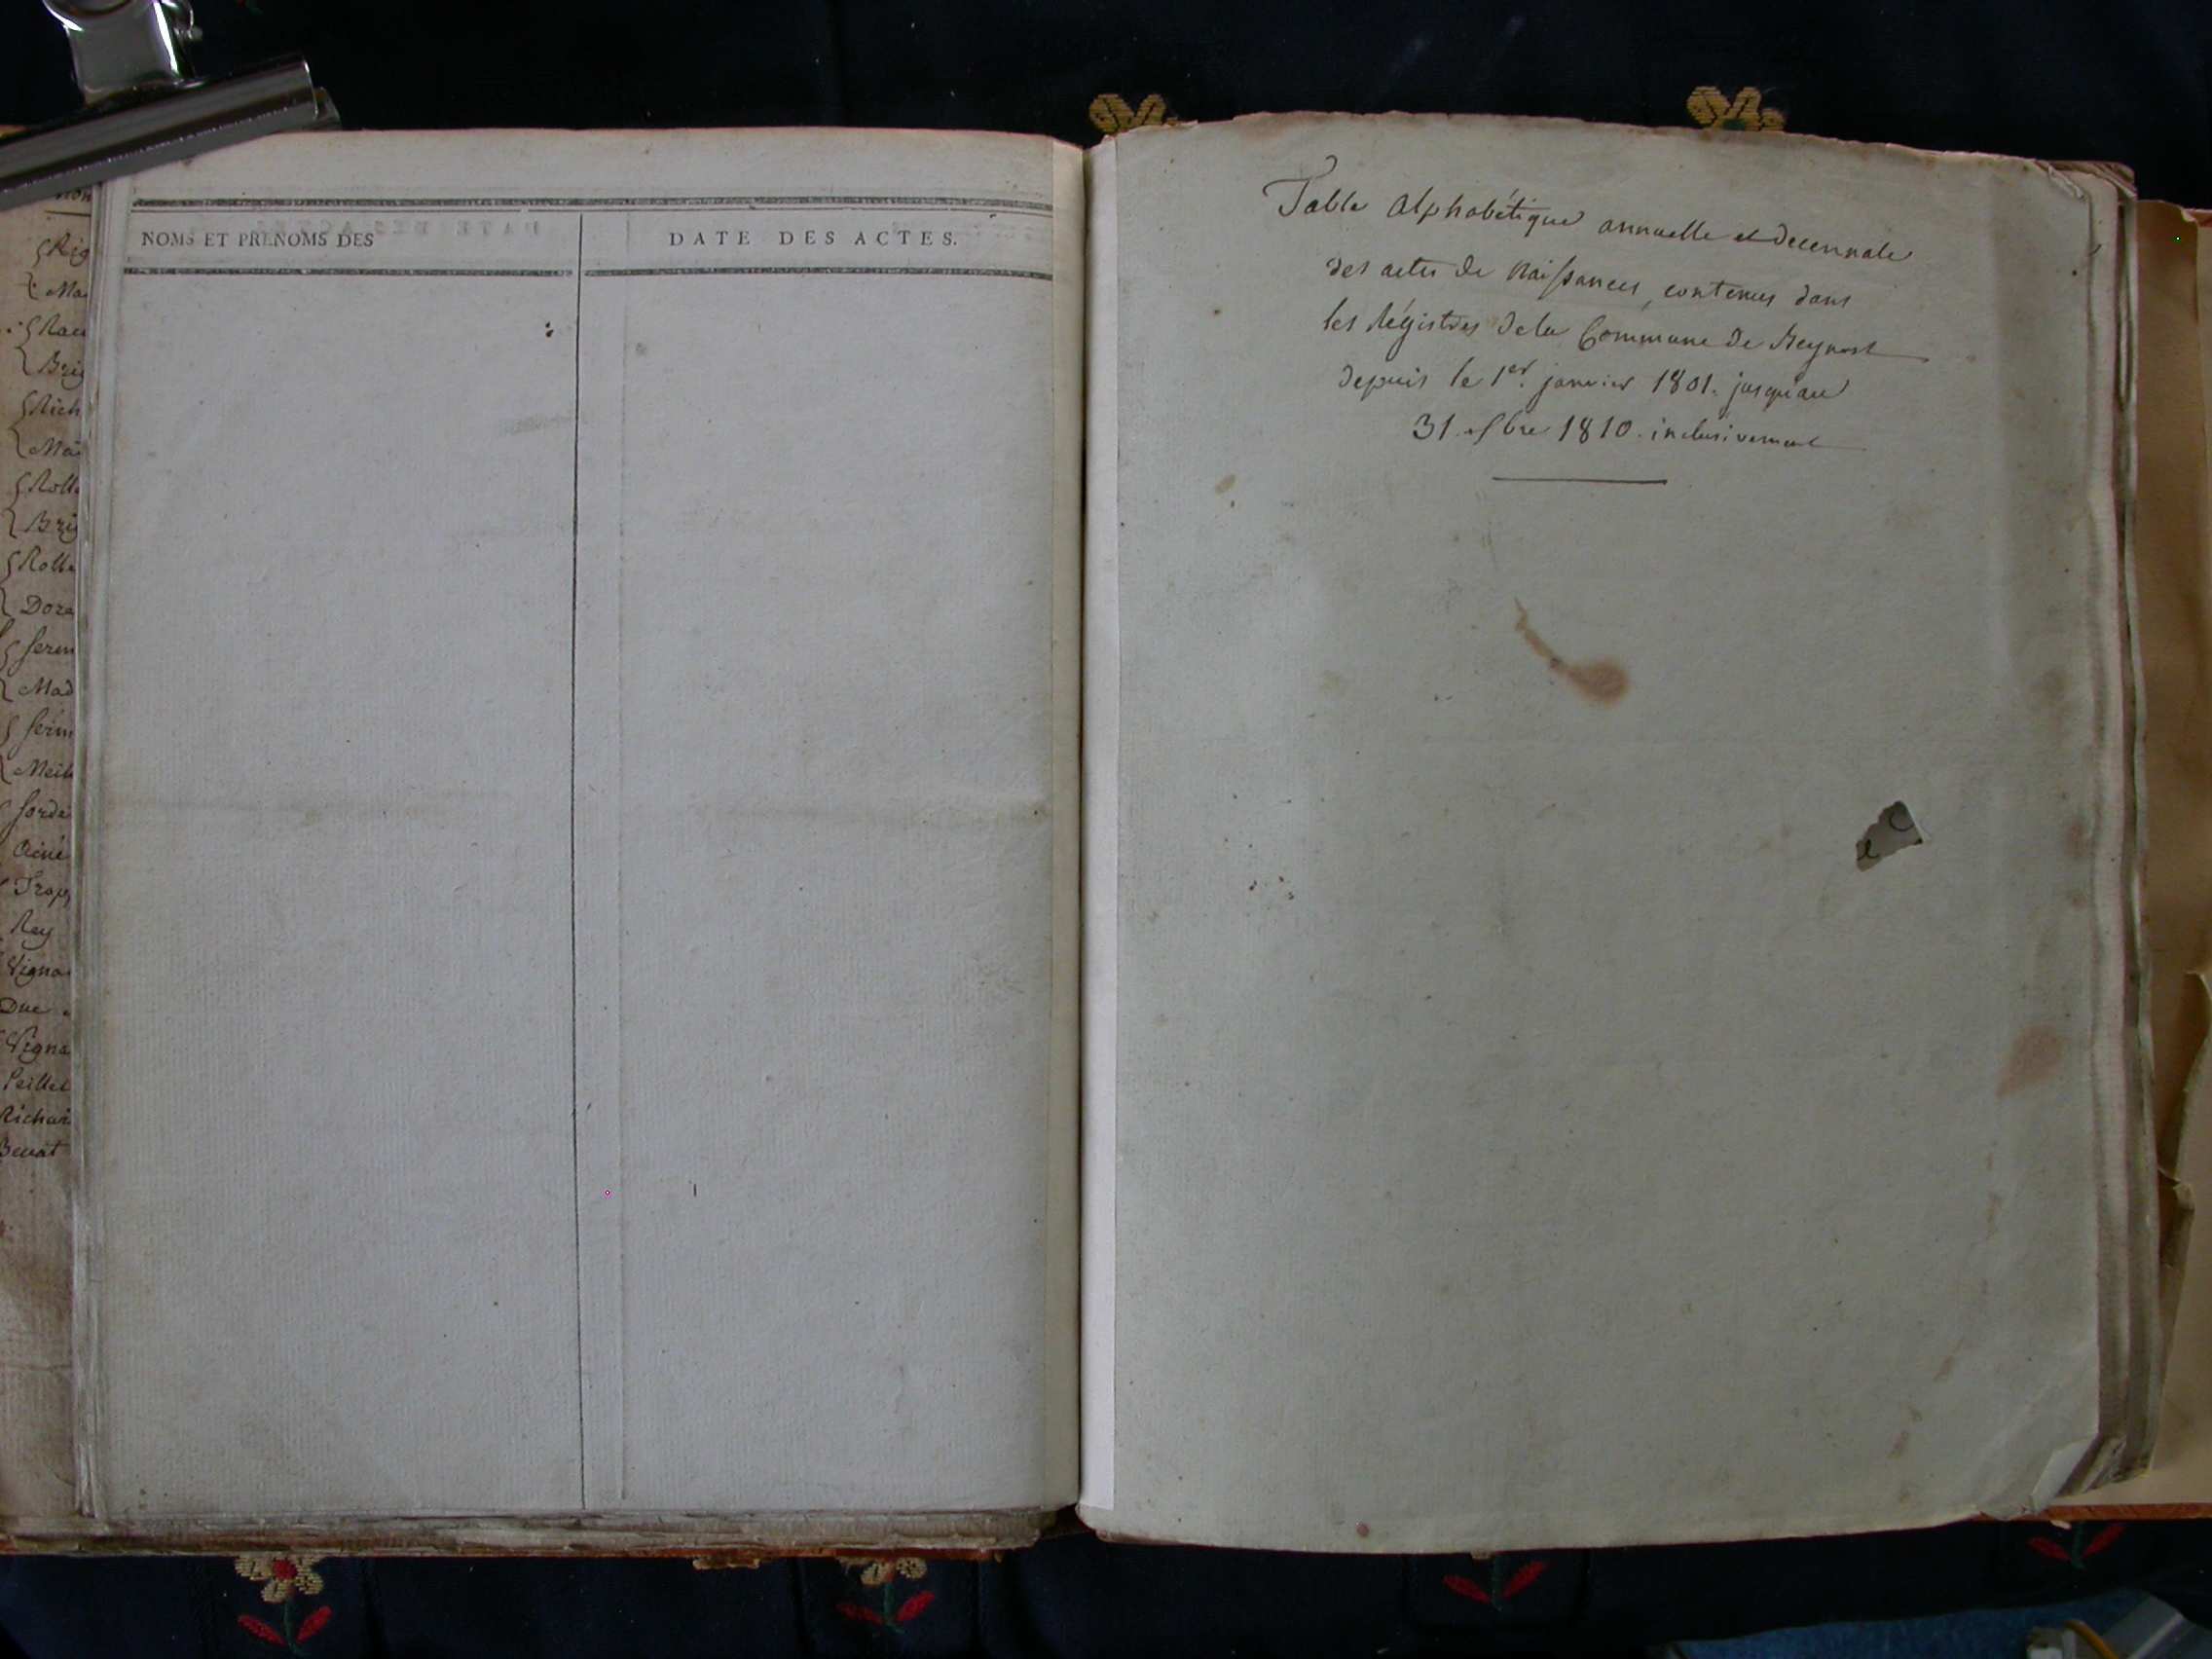 Rig
Ma
Rac
Brig
Rich
Ma
Roll
Brig
Roll
Dora
Serm
Mad
Serm
Meil
Sorde
Aimé
Trap
Rey
Vigna
Duc
Vigna
Peillet
Richar
Benat
NOMS ET PRENOMS DES
DATE DES ACTES.
Table Alphabétique annuelle et decennale
des actes de Naissances, contenus dans
les Régistres de la Commune de Beynost
depuis le 1er. janvier 1801. jusqu'au
31. Xbre 1810. inclusivement